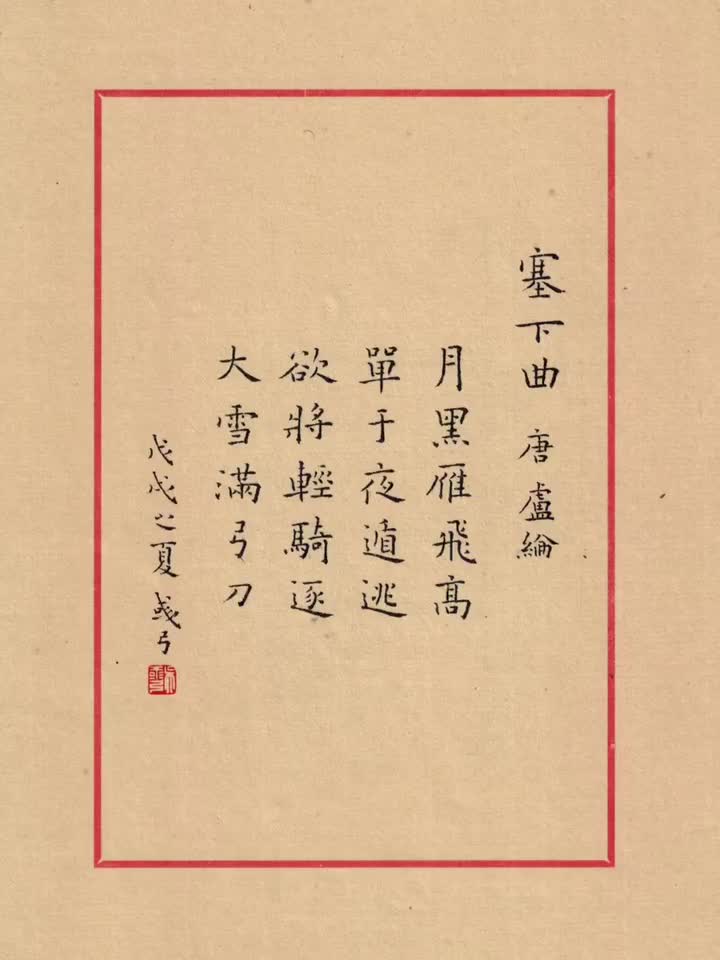 塞下曲 唐 盧綸
月黑雁飛高
單于夜遁逃
欲將輕騎逐
大雪滿弓刀
戊戌之夏 彧弓